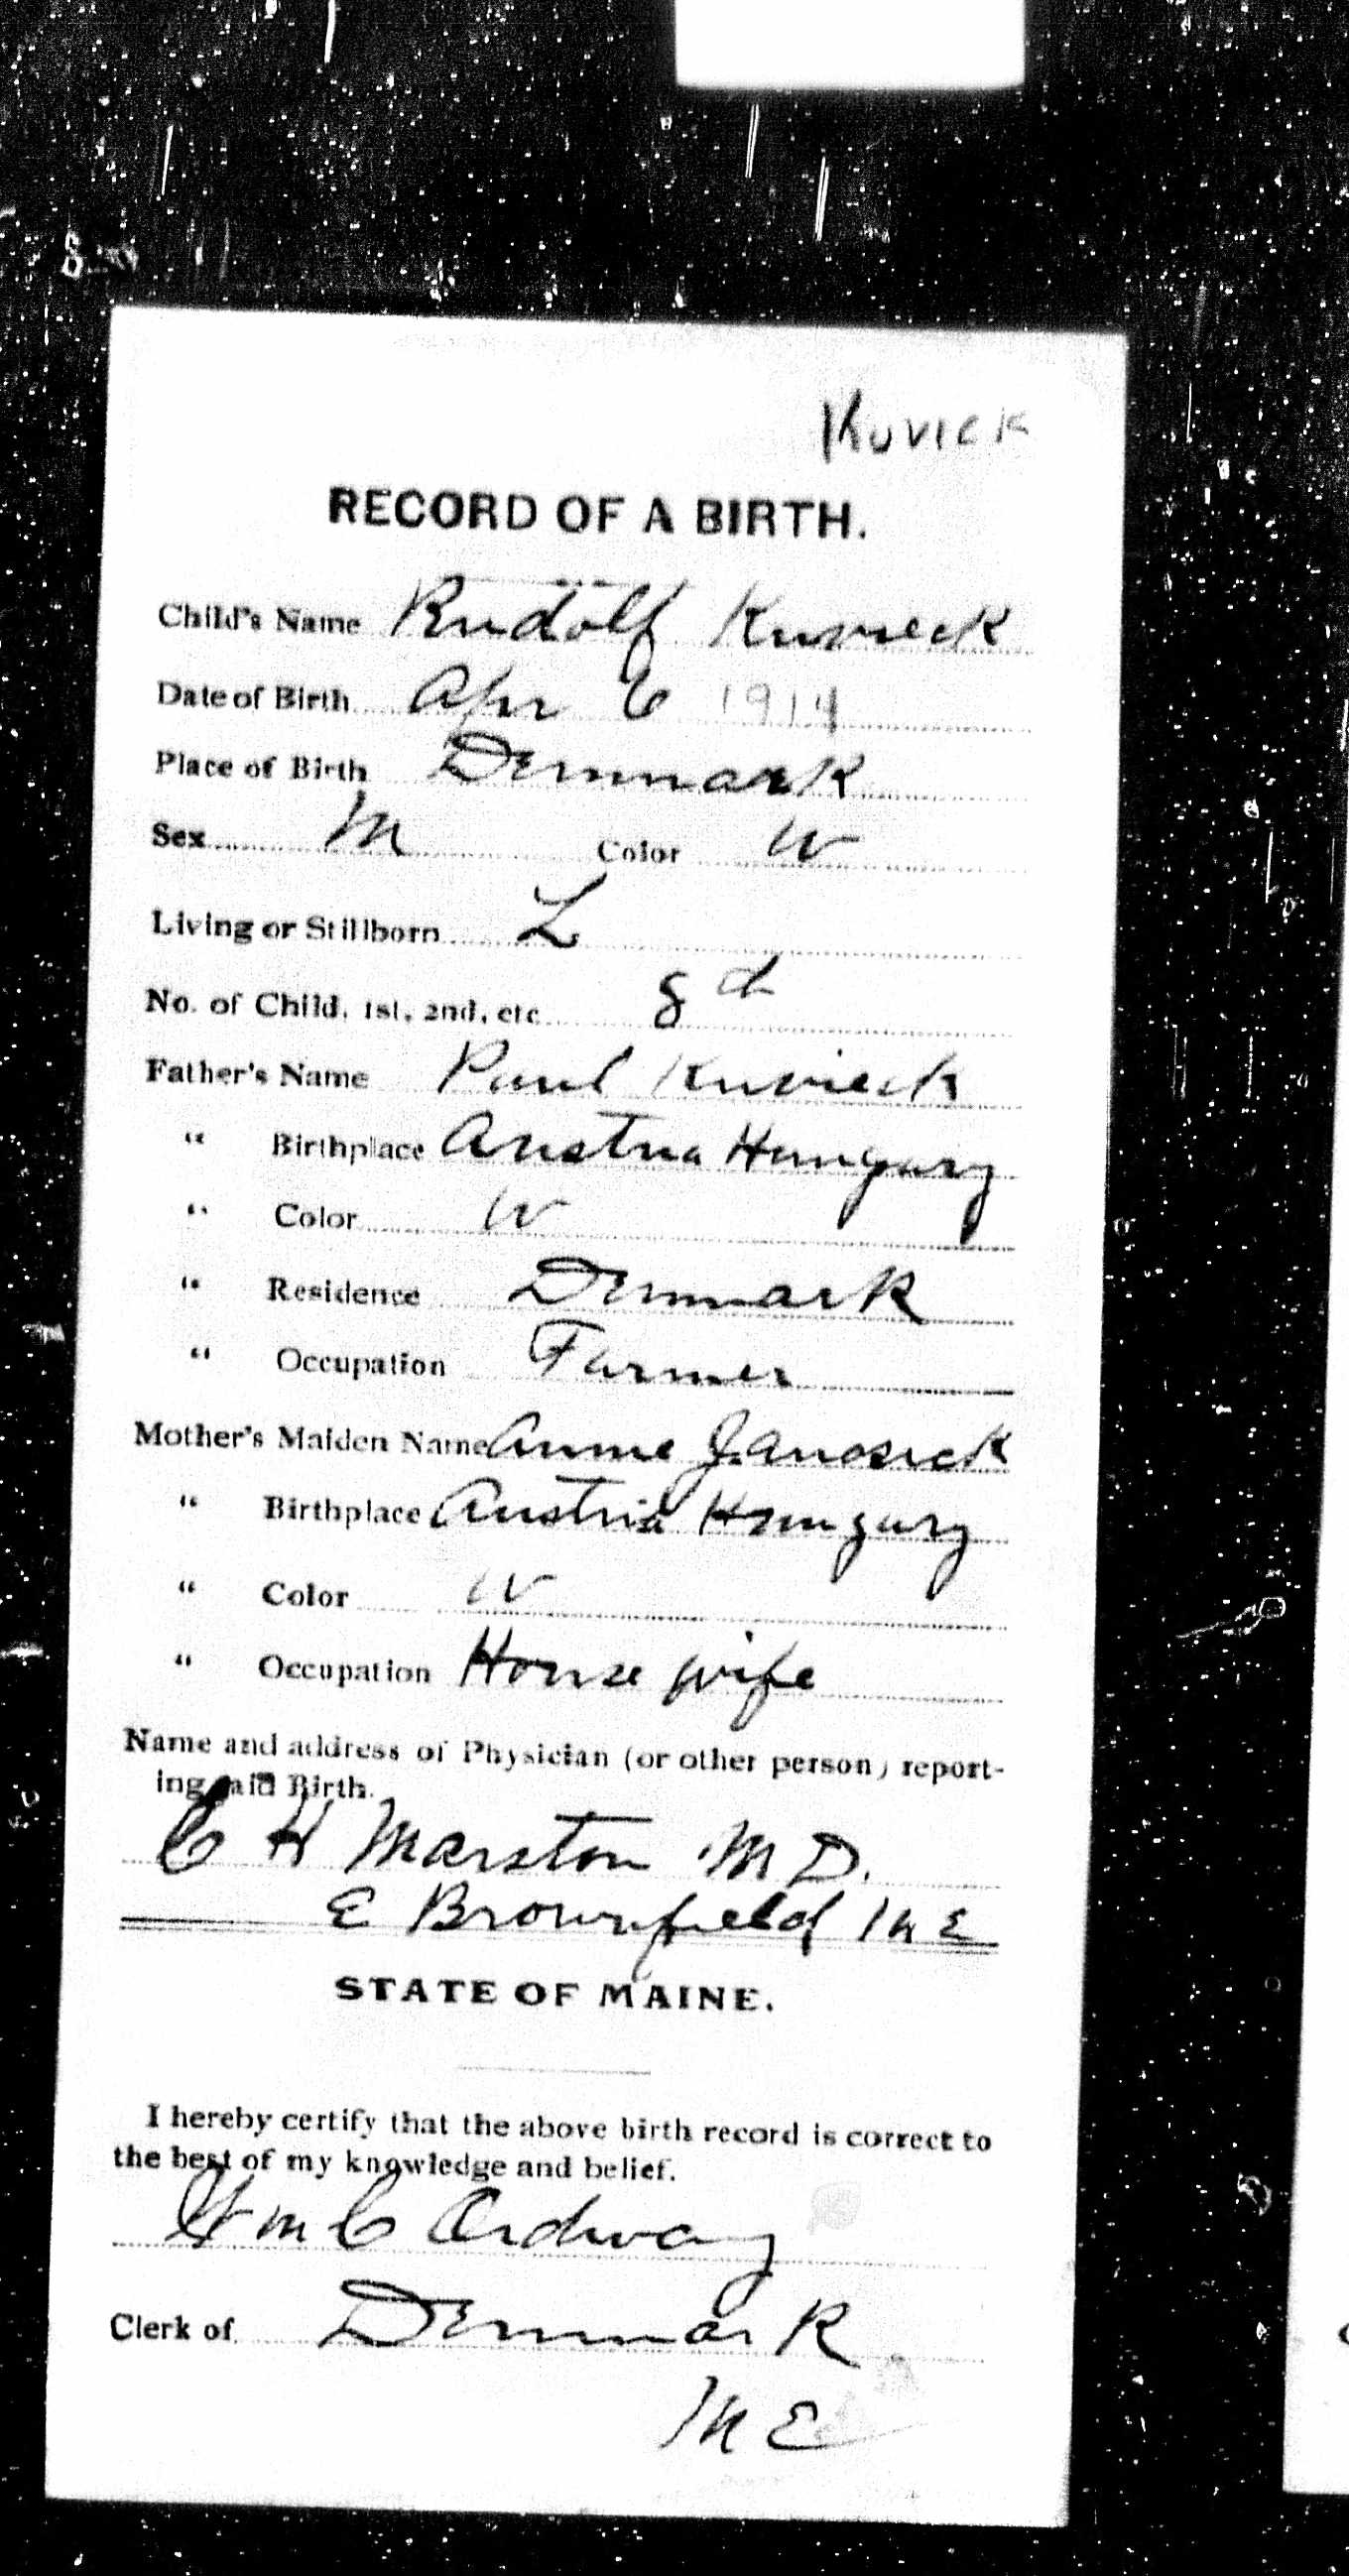 Kuvick
RECORD OF A BIRTH.
Child's Name Rudolf Kuvieck
Date of Birth Apr 6 1914
Place of Birth Denmark
Sex M Color W
Living or Stillborn L
No. of Child, 1st, 2nd, etc 8th
Father's Name Paul Kuvieck
" Birthplace Austria Hungary
" Color W
" Residence Denmark
" Occupation Farmer
Mother's Maiden Name Annie Janosick
" Birthplace Austria Hungary
" Color W
" Occupation House wife
Name and address of Physician (or other person) report-
ing said Birth.
C H Marston M D.
E Brownfield ME
STATE OF MAINE.
I hereby certify that the above birth record is correct to
the best of my knowledge and belief.
Wm C Ordway
Clerk of Denmark
ME